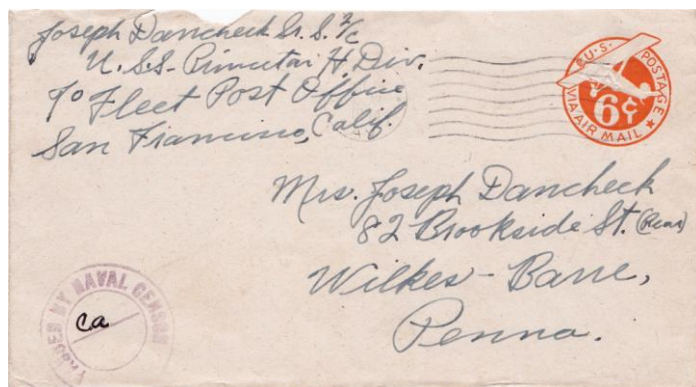 Joseph Dancheck Sr. S. 2/c
U.S.S. Pimutar, H. Div.
℅ Fleet Post Office
San Francisco, Calif.
U.S. POSTAGE
VIA AIR MAIL
6¢
Mrs. Joseph Dancheck
82 Brookside St. (Rear)
Wilkes-Barre,
Penna.
PASSED BY NAVAL CENSOR
ca